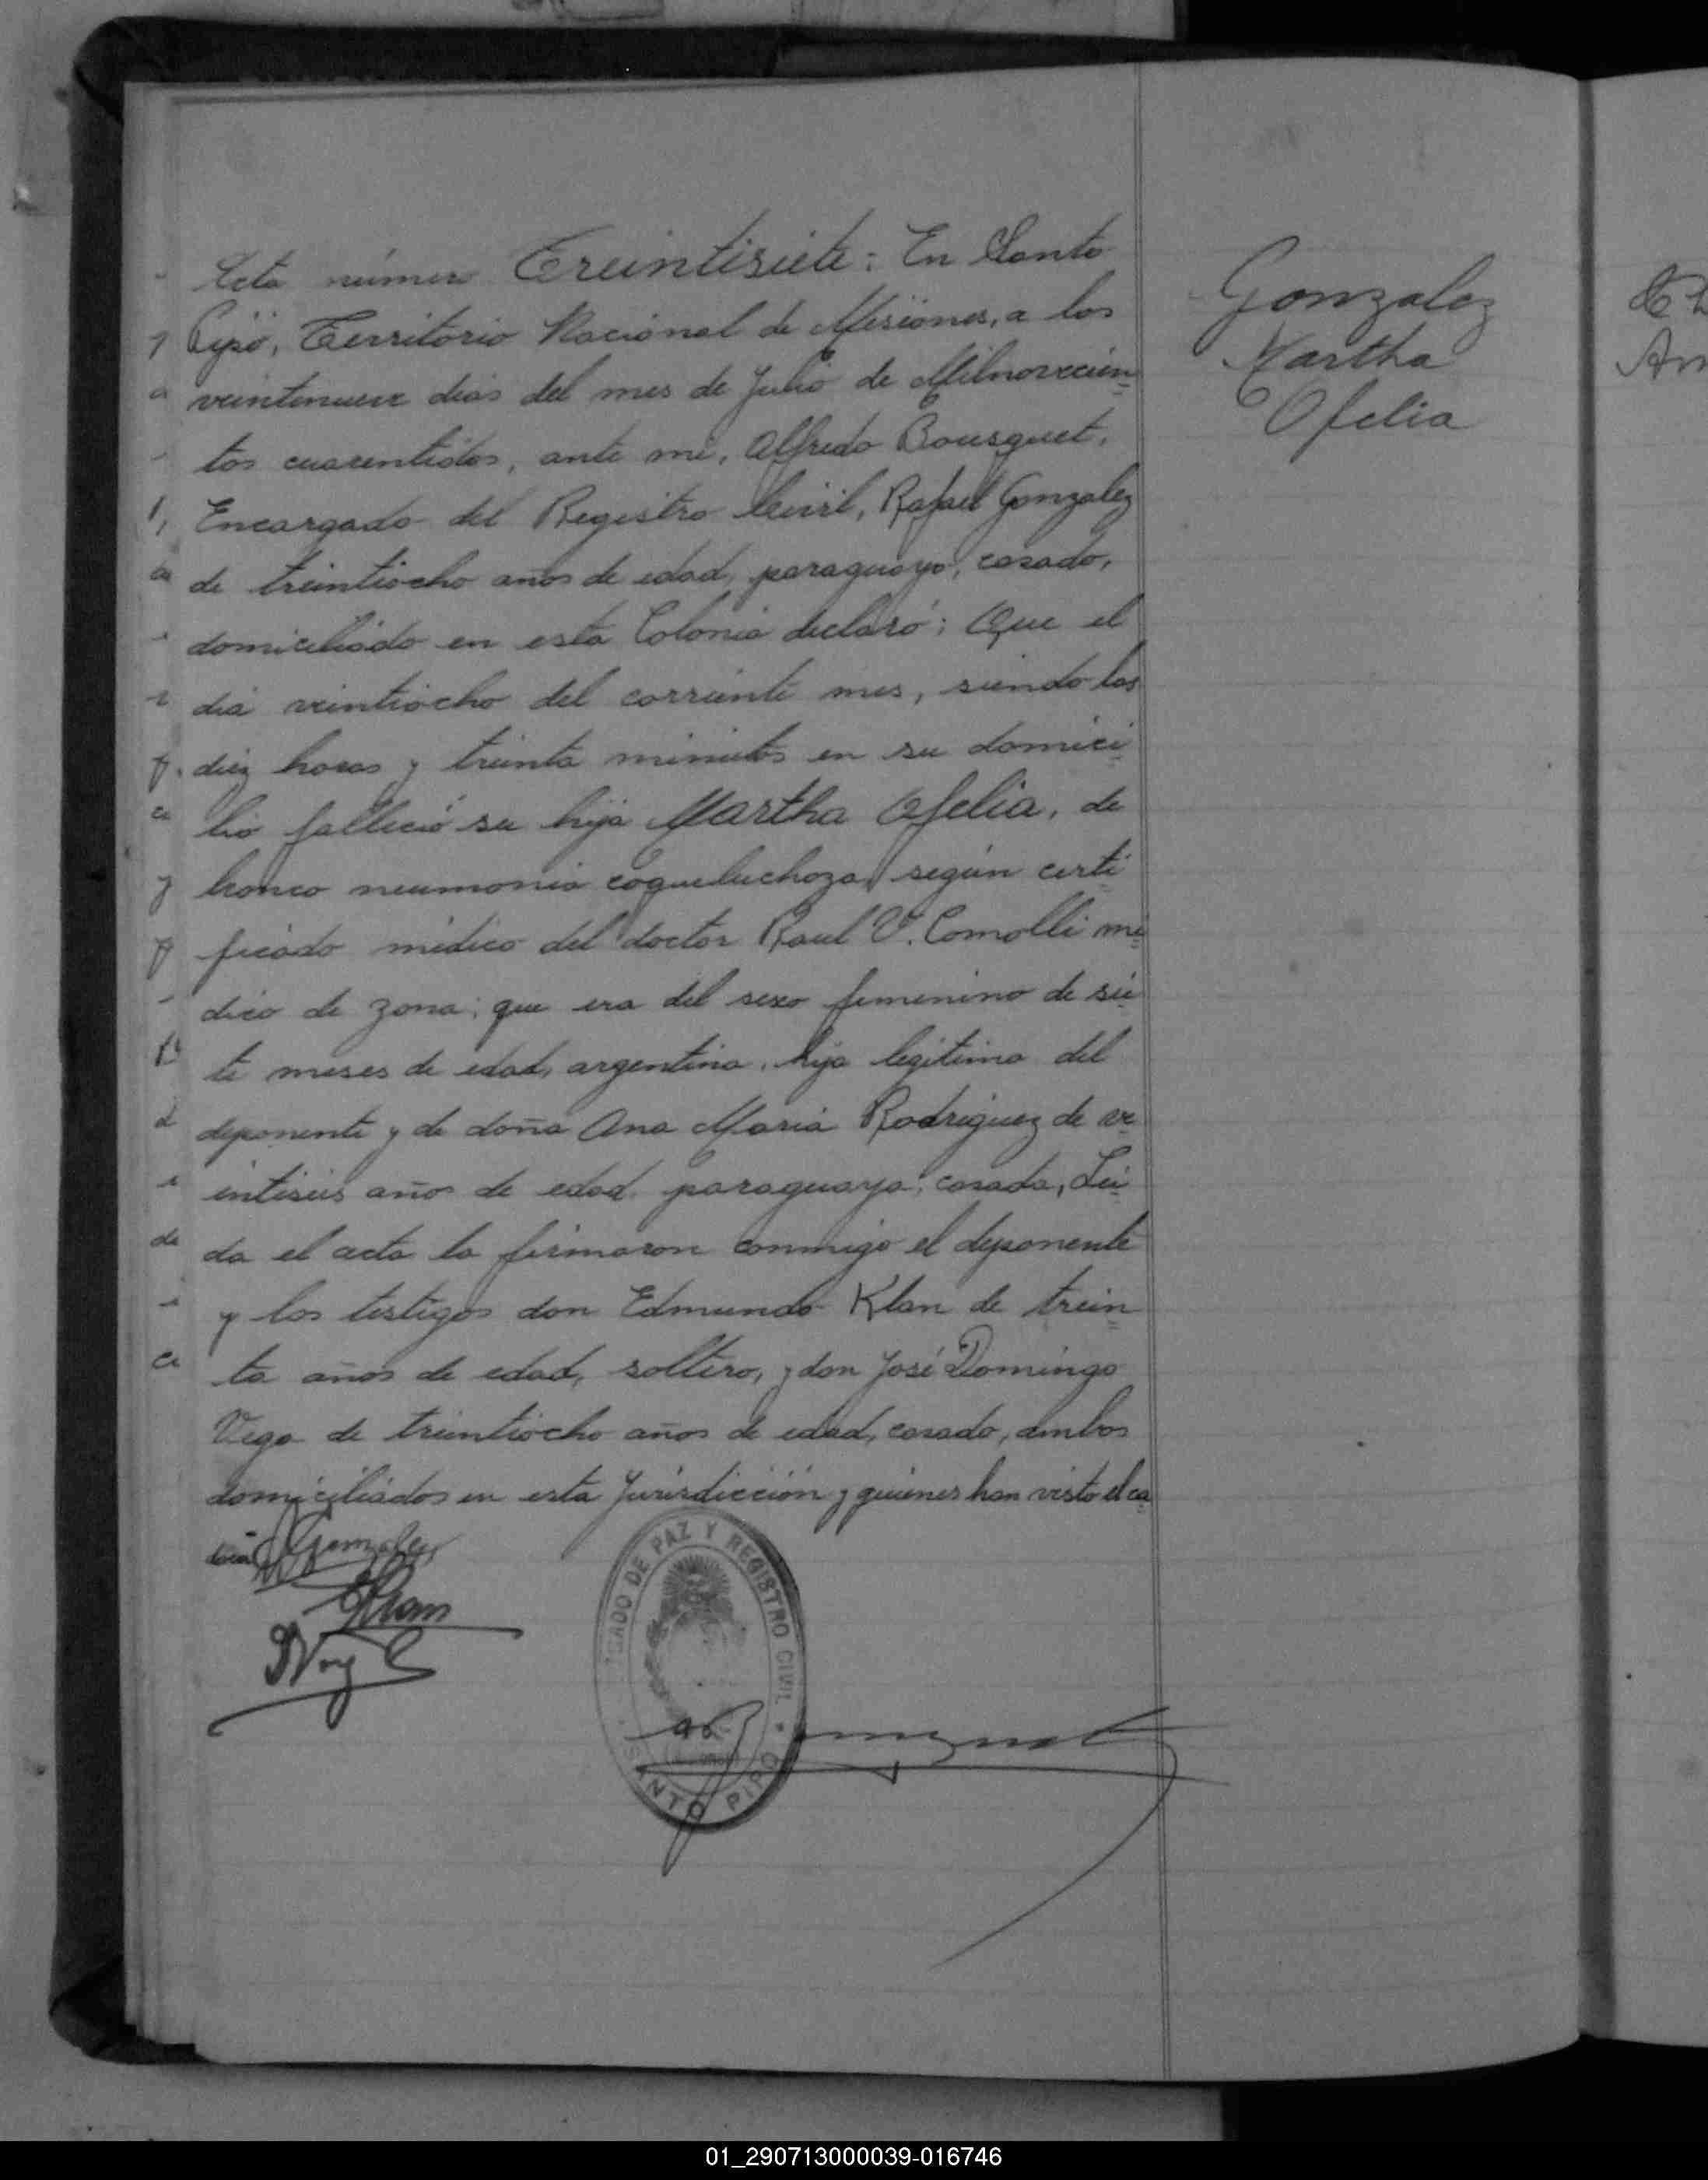 Acta número Treintisiete: En Santo
Pipó, Territorio Nacional de Misiones, a los
veintenueve dias del mes de Julio de Milnovecien=
tos cuarentidos, ante mi, Alfredo Bousquet,
Encargado del Registro Civil, Rafael Gonzalez
de treintiocho años de edad, paraguayo, casado,
domiciliado en esta Colonia declaró: Que el
dia veintiocho del corriente mes, siendo las
diez horas y treinta minutos en su domici=
lio falleció su hija Martha Ofelia, de
bronco neumonia coqueluchoza, según certi=
ficado médico del doctor Raul V. Comolli mé=
dico de zona; que era del sexo femenino de sie=
te meses de edad, argentina, hija legitima del
deponente y de doña Ana Maria Rodriguez de ve=
intiseis años de edad, paraguaya, casada, Lei=
da el acta la firmaron conmigo el deponente
y los testigos don Edmundo Klan de trein=
ta años de edad, soltero, y don José Domingo
Vega de treintiocho años de edad, casado, ambos
domiciliados en esta Jurisdicción y quienes han visto el ca=
Gonzalez
JUZGADO DE PAZ Y REGISTRO CIVIL
SANTO PIPO
Gonzalez
Martha
Ofelia
01_290713000039-016746